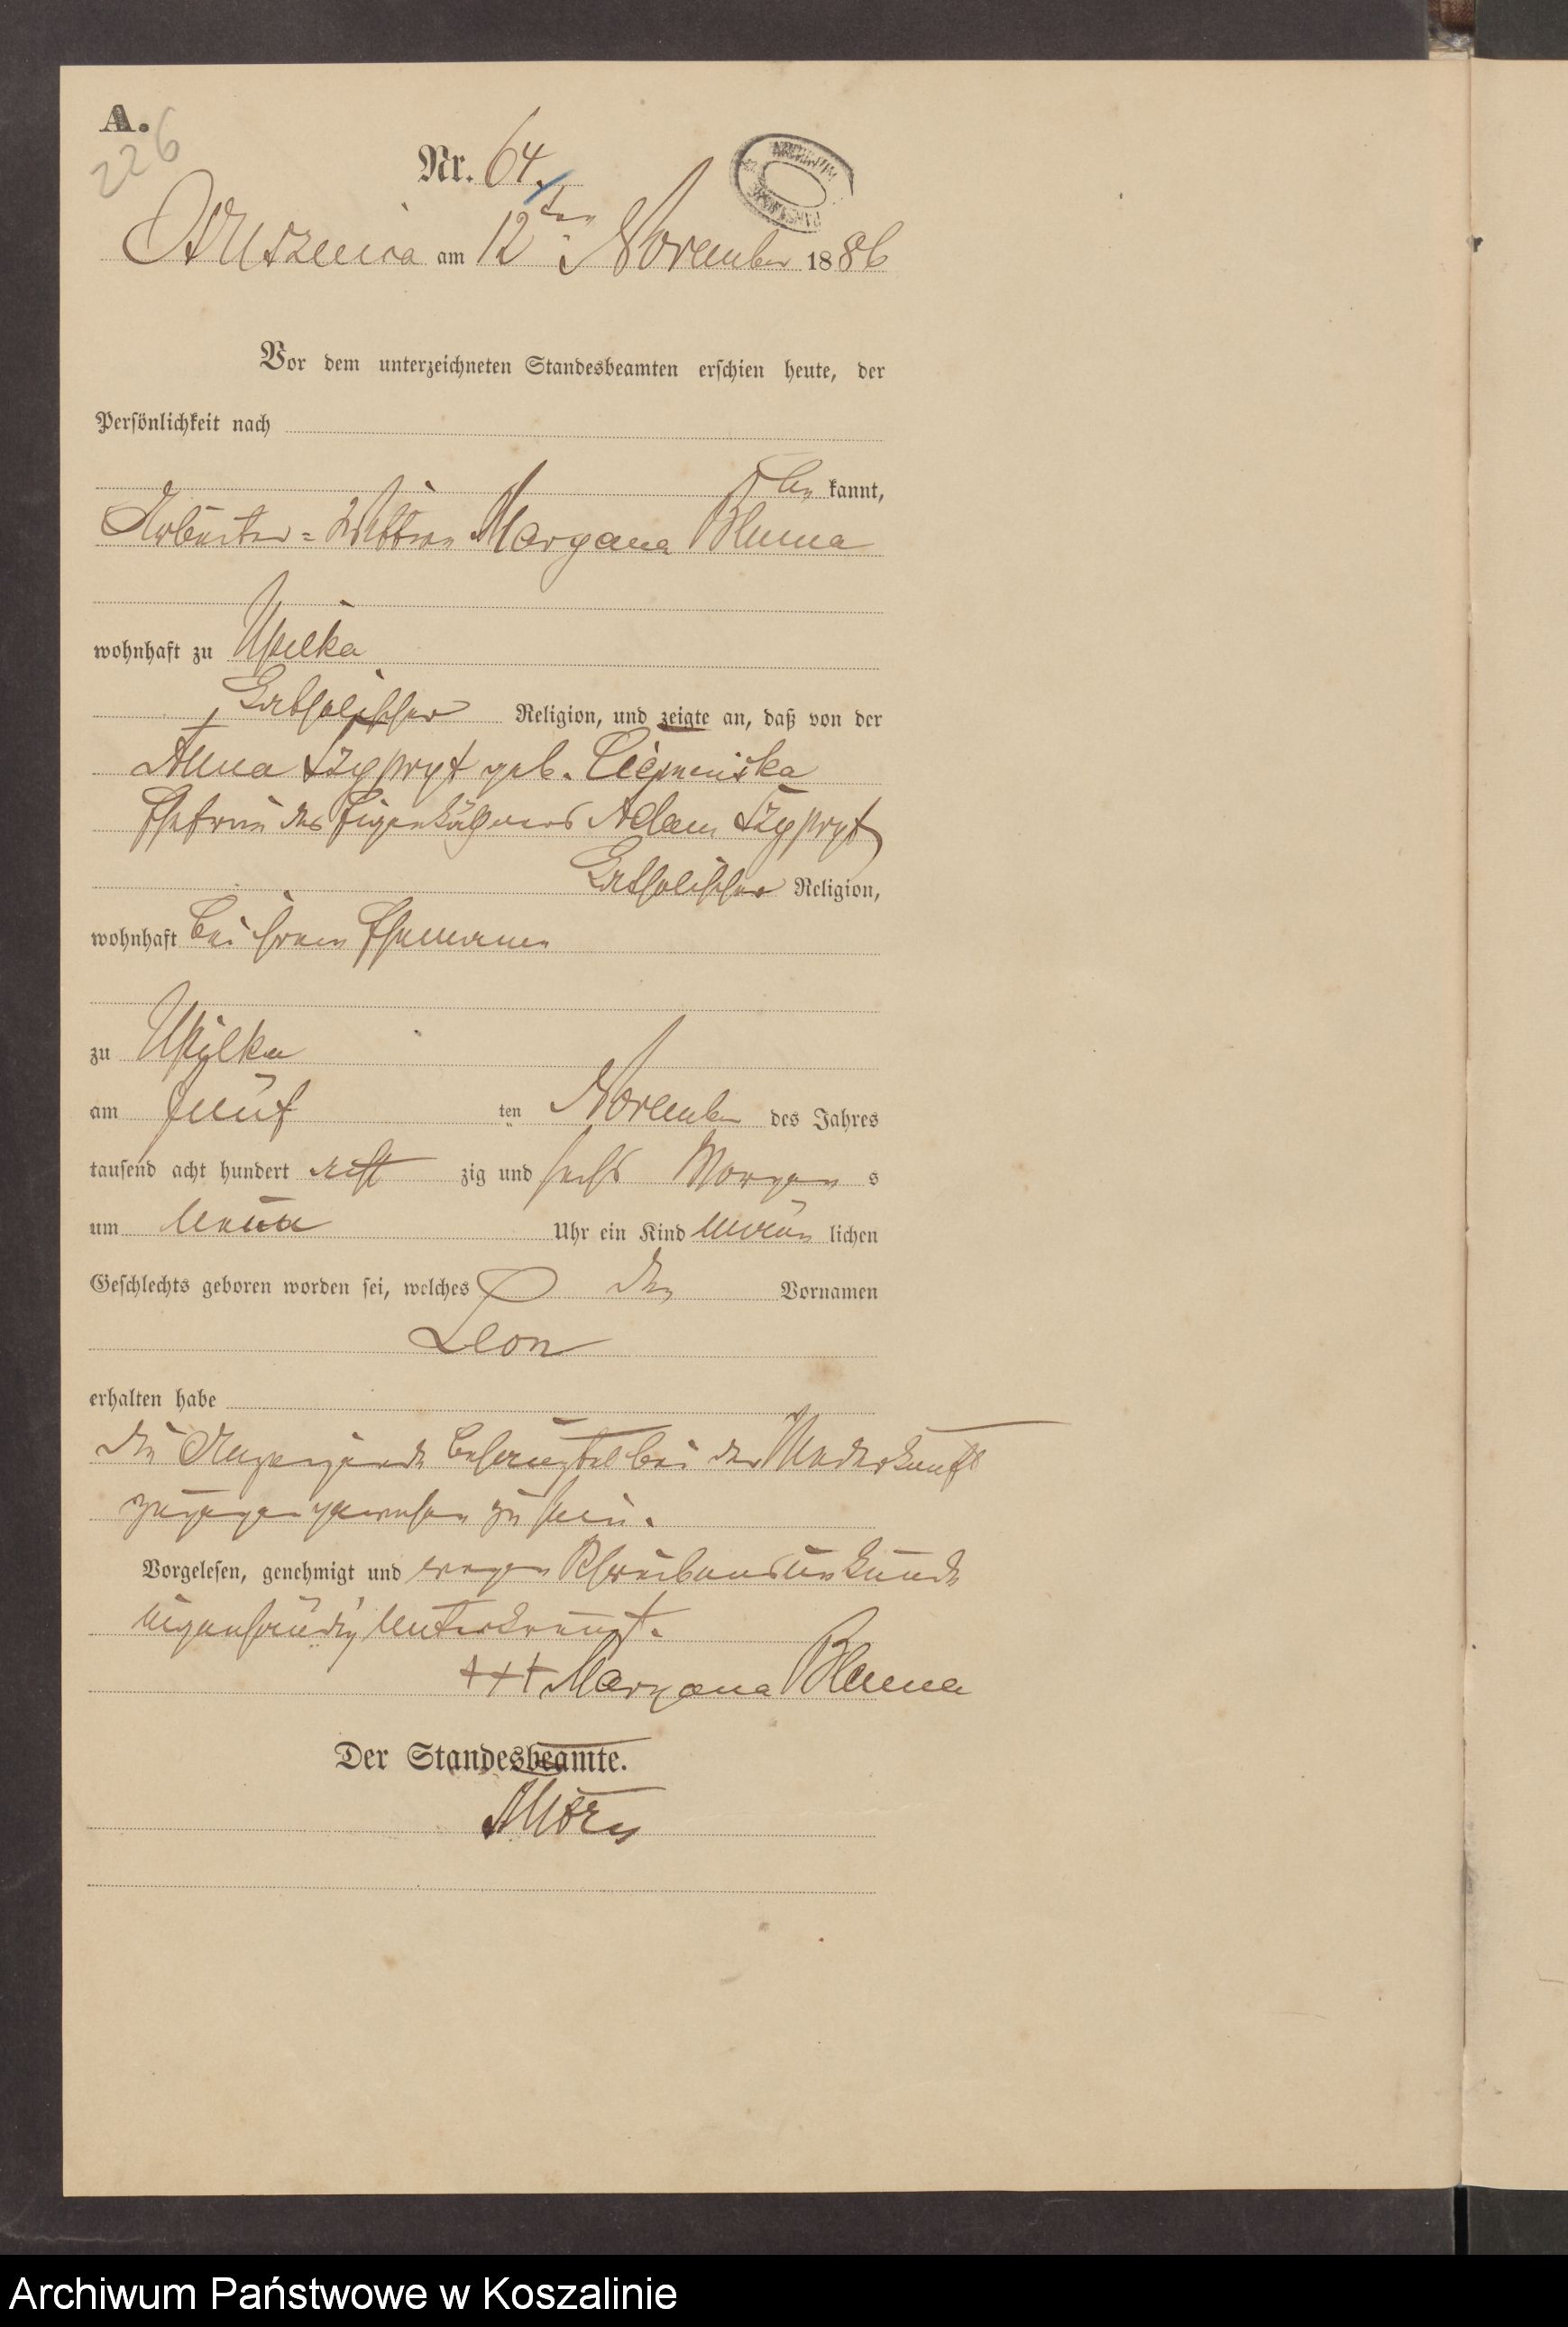 A.
226
Nr. 64.
ARCHIWUM
am 12ten November 1886
Vor dem unterzeichneten Standesbeamten erschien heute, der
Persönlichkeit nach
be kannt,
Arbeiter-Wittwe Maryana Bluma
wohnhaft zu Upilka
katholischer Religion, und zeigte an, daß von der
Anna Szypryt geb.
Ehefrau des Eigenkäthners Adam Szypryt
katholischer Religion,
wohnhaft bei ihrem Ehemanne
zu Upilka
am fünf ten November des Jahres
tausend acht hundert acht zig und sechs Morgen s
um neun Uhr ein Kind männ lichen
Geschlechts geboren worden sei, welches den Vornamen
Leon
erhalten habe
Die Anzeigende bei der Niederkunft
zugegen gewesen zu sein.
Vorgelesen, genehmigt und wegen Schreibensunkunde
eigenhändig unterkreuzt.
+++ Maryana Bluma
Der Standesbeamte.
Archiwum Państwowe w Koszalinie